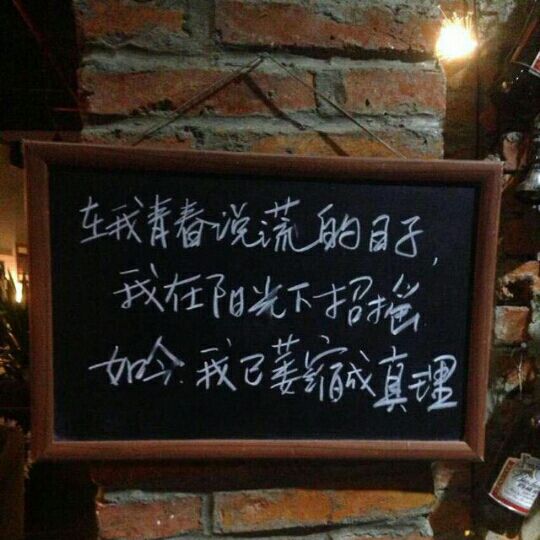 在我青春说谎的日子,
我在阳光下招摇
如今我已萎缩成真理